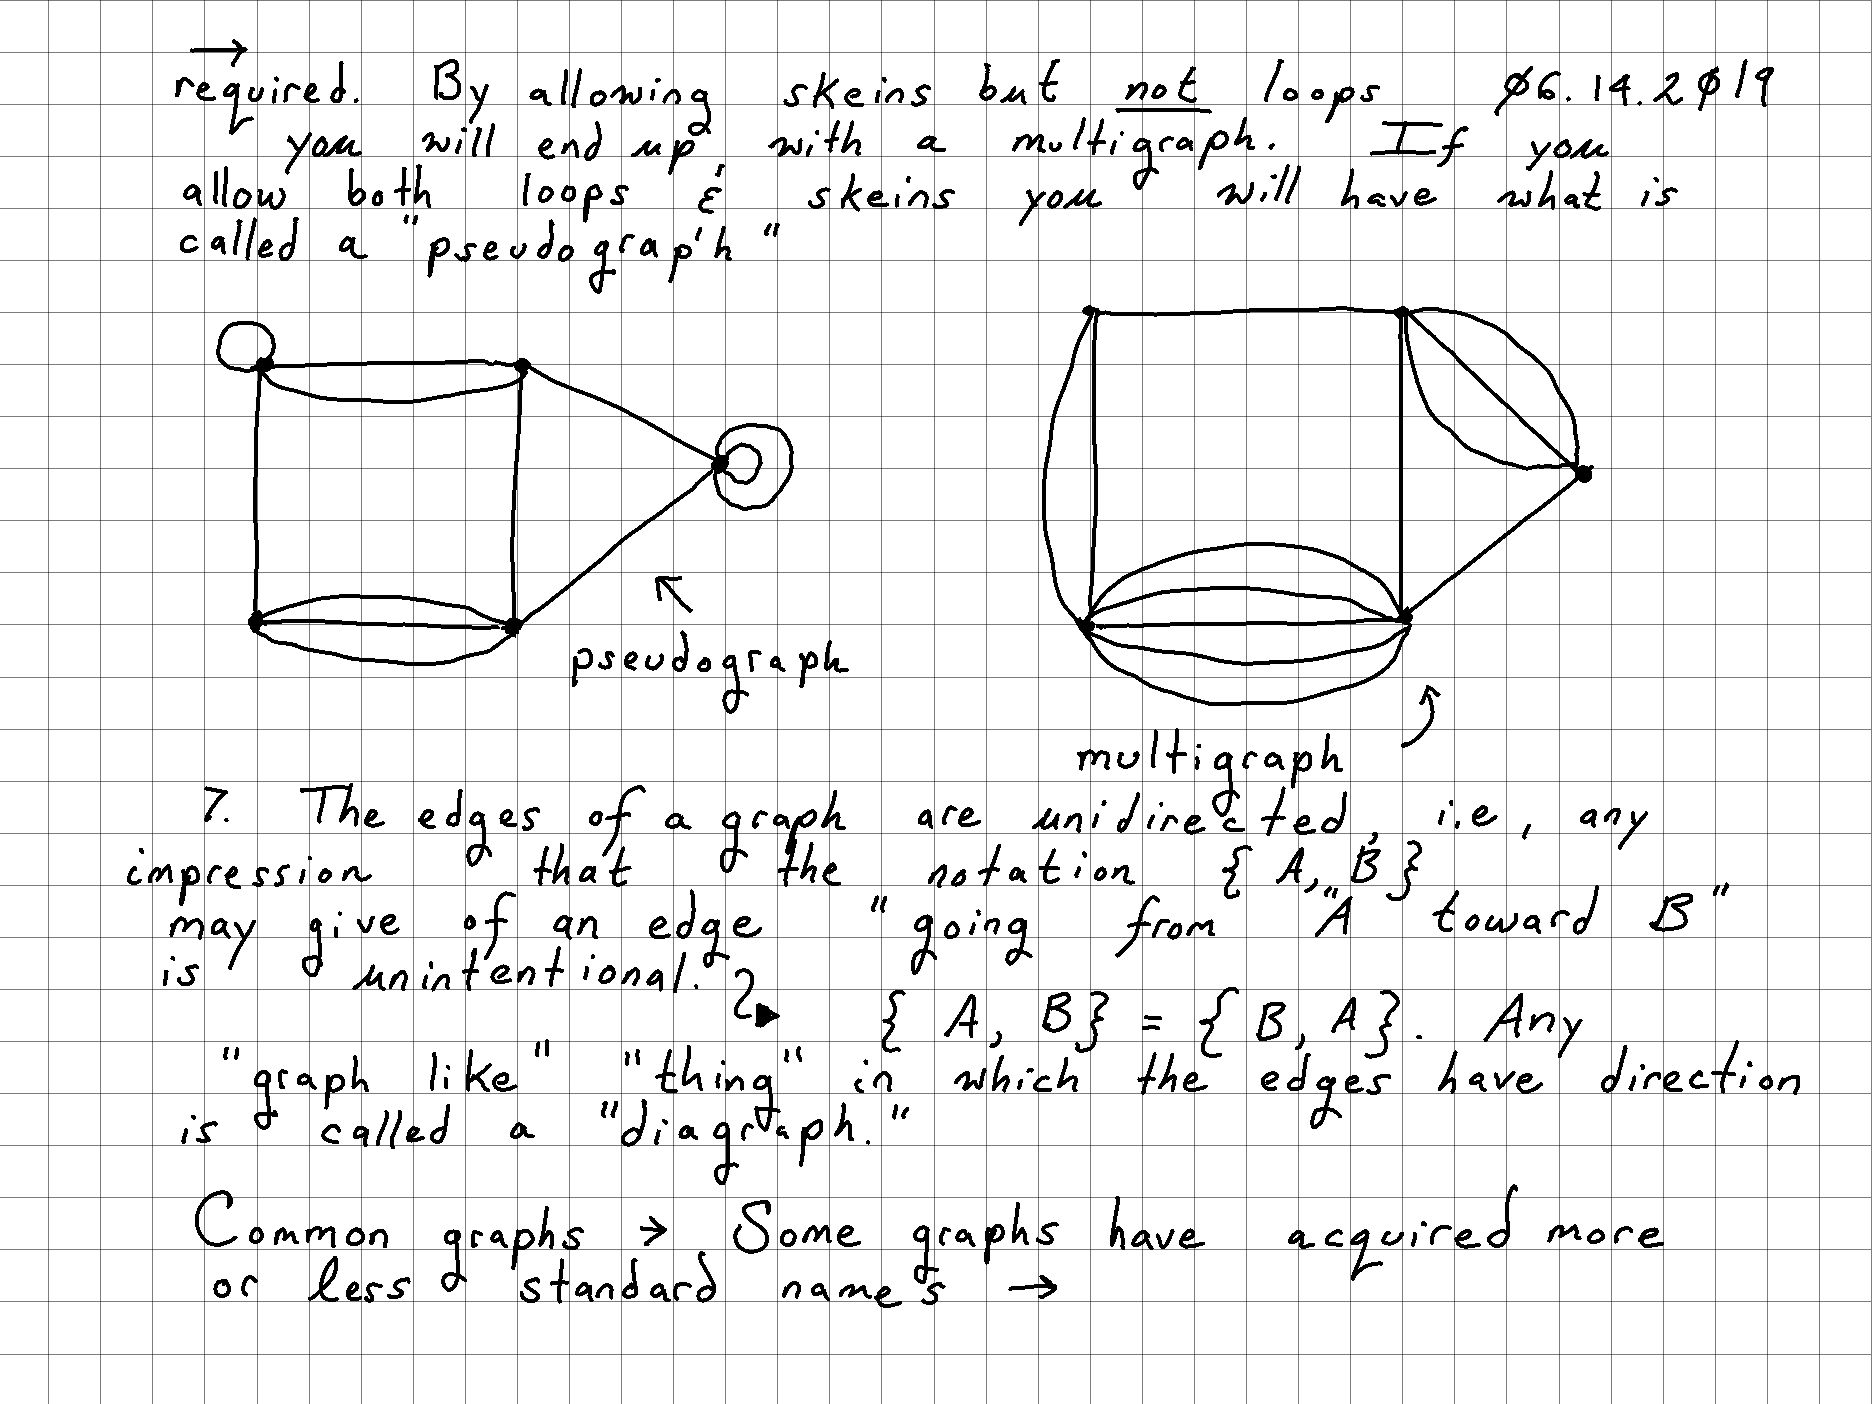 →
required. By allowing skeins but not loops 06.14.2019
you will end up with a multigraph. If you
allow both loops & skeins you will have what is
called a "pseudograph"
pseudograph
multigraph
7. The edges of a graph are unidirected, i.e, any
impression that the notation { A, B }
may give of an edge "going from "A toward B"
is unintentional.
{ A, B } = { B, A }. Any
"graph like" "thing" in which the edges have direction
is called a "diagraph."
Common graphs → Some graphs have acquired more
or less standard names →